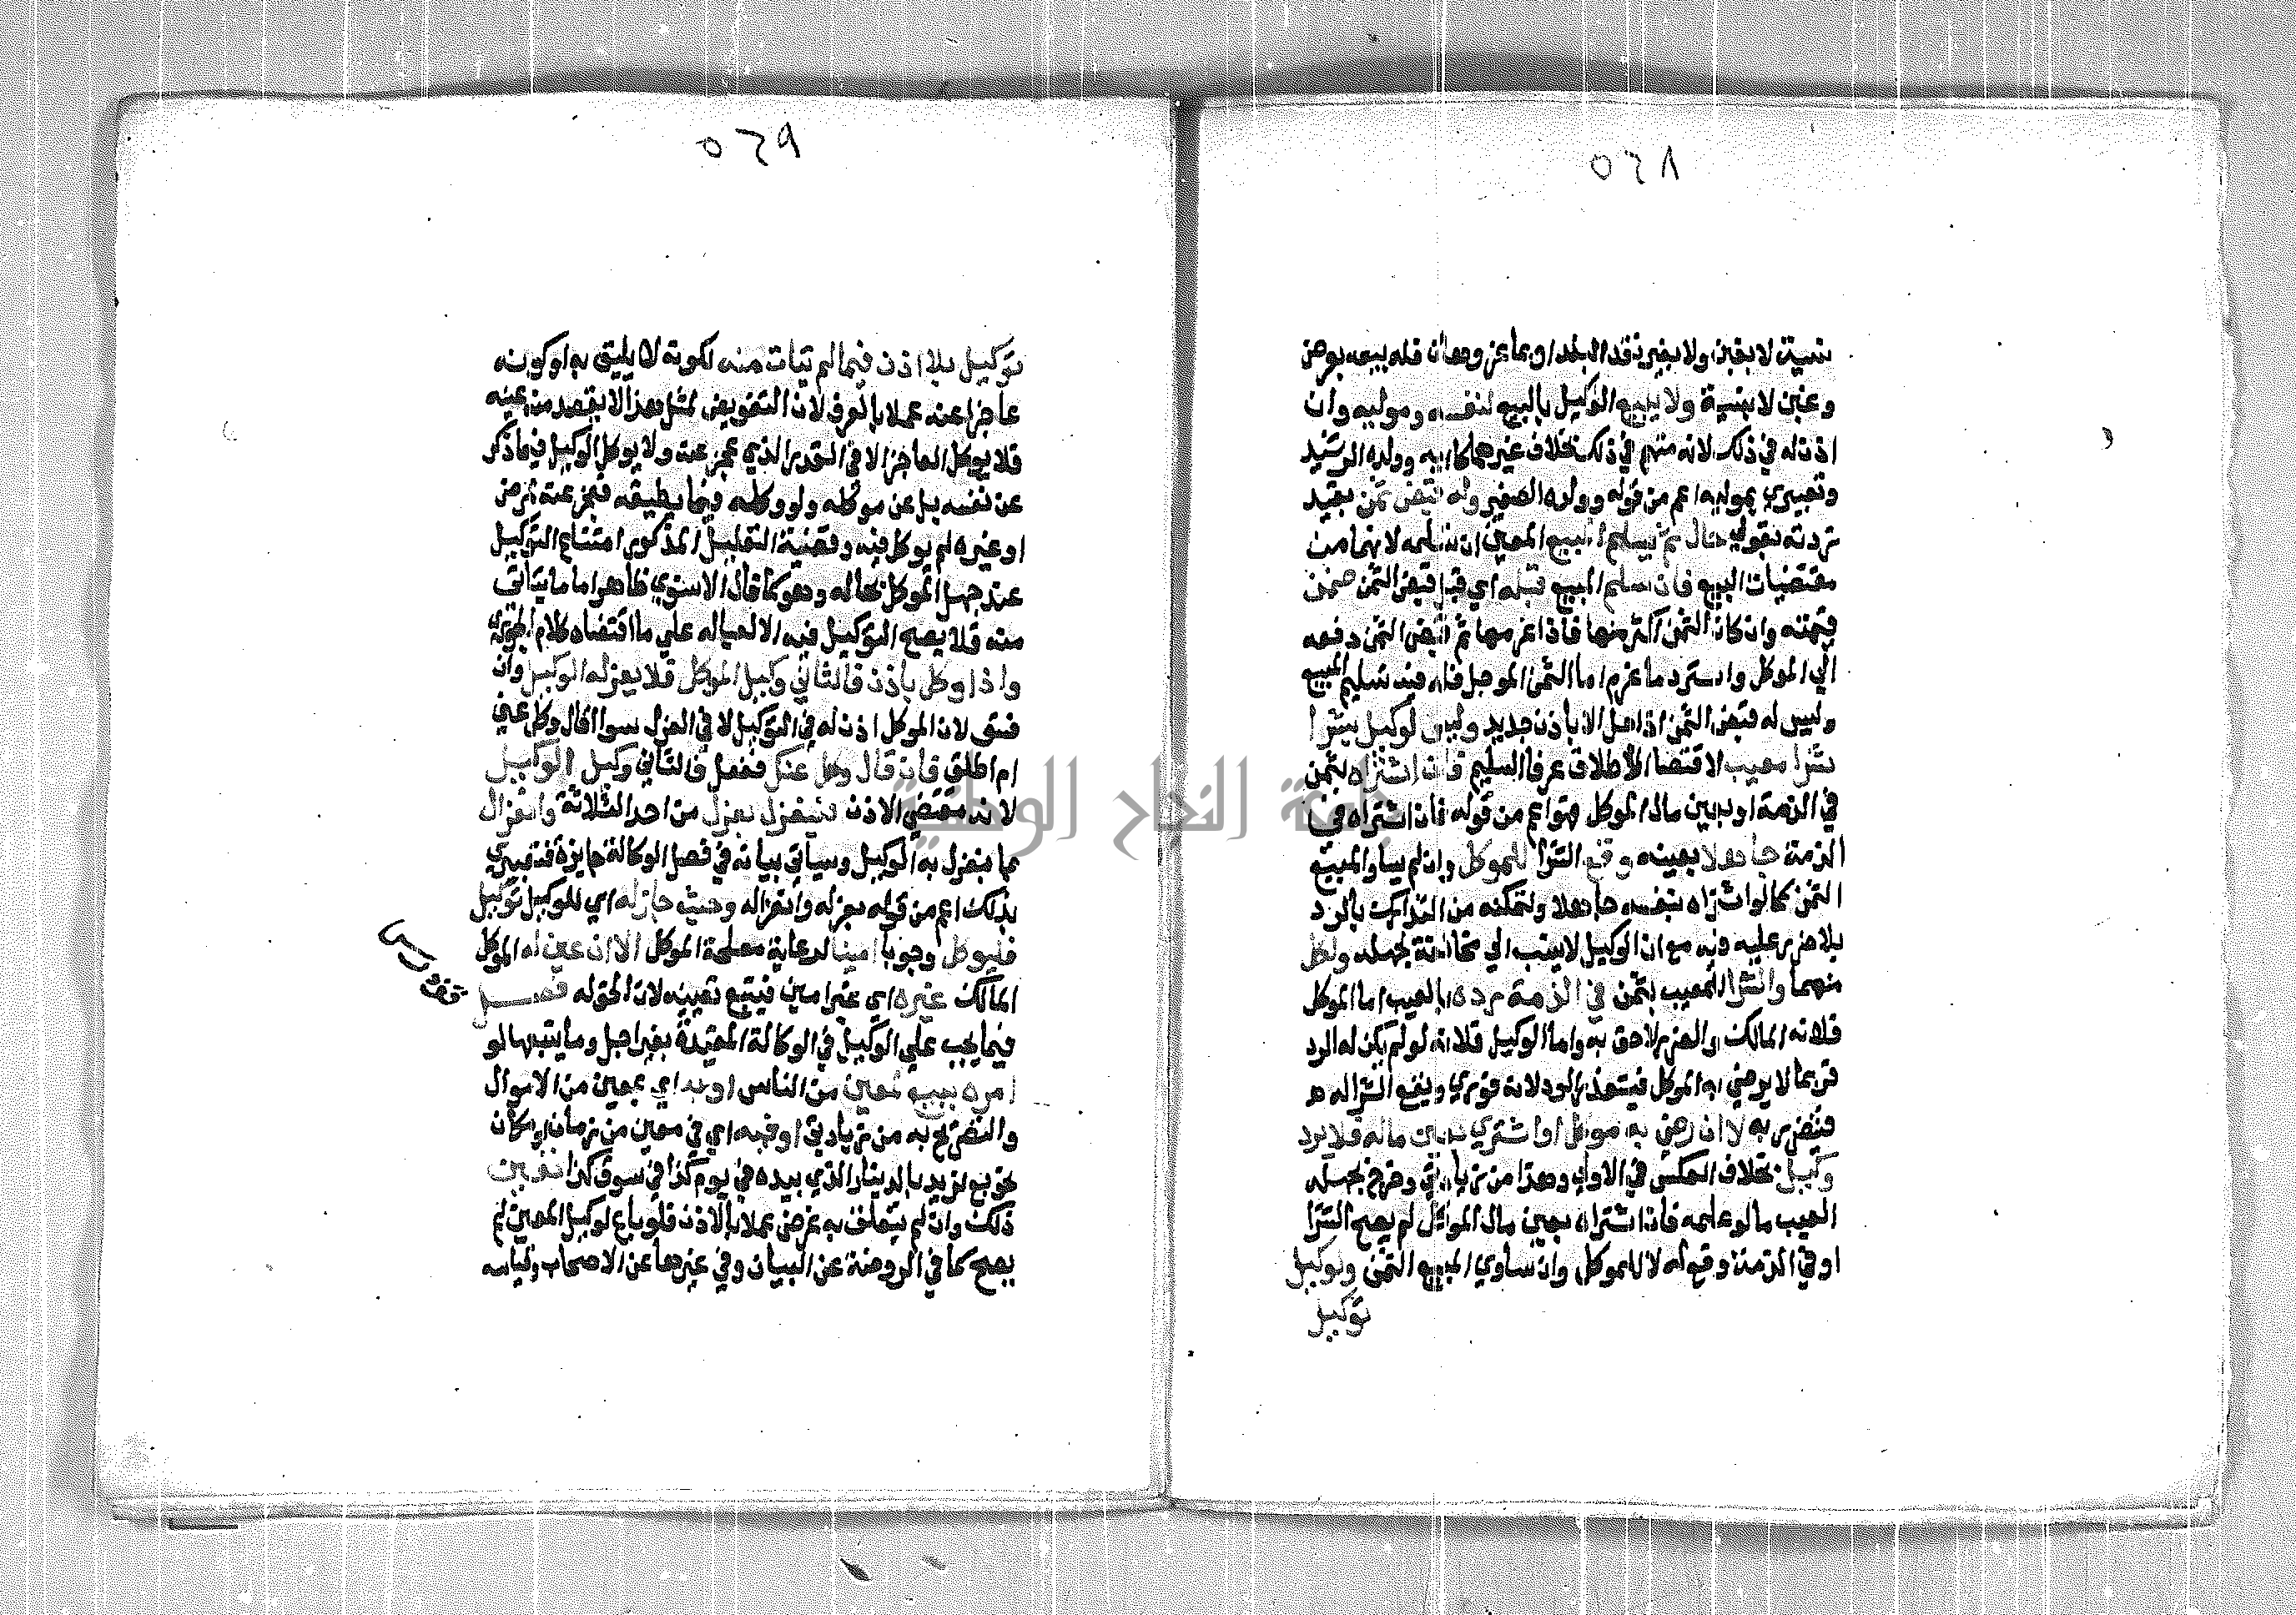 ٥٦٨
بنسيئة لا بغبن ولا بغير نقد البلد او بما عز وهان فله بيعه بعرض
وغبن لا بنسيئة ولا يبيع الوكيل بالبيع لنفسه وموليه وان
اذن له في ذلك لانه متهم في ذلك بخلاف غيرهما كابيه وولده الرشيد
وتعبيري بموليه اعم من قوله وولده الصغير وله قبض ثمن بقيد
زدته بقولي حال ثم يسلم المبيع المعين ان تسلمه لانهما من
مقتضيات البيع فان سلم المبيع قبله اي قبل قبض الثمن ضمن
قيمته وان كان الثمن اكثر منها فاذا غرمها ثم قبض الثمن دفعه
الي الموكل واسترد ما غرم اما الثمن الموجل فله فيه تسليم المبيع
وليس له قبض الثمن اذا حل الا باذن جديد وليس لوكيل بشرا
شرا معيب لاقتضا الاطلاق عرفا السليم فان اشتراه بثمن
في الذمة او بعين مال الموكل فهو اعم من قوله فان اشتراه في
الذمة جاهلا بعيبه وقع الشرا للموكل وان لم يساو المبيع
الثمن كما لو اشتراه بنفسه جاهلا ولتمكنه من التدارك بالرد
بلا ضرر عليه فيه مع ان الوكيل لا ينسب الي مخالفة لجهله ولكل
منهما والشرا لمعيب بثمن في الذمة رده بالعيب اما الموكل
فلانه المالك والضرر لاحق به واما الوكيل فلانه لو لم يكن له الرد
فربما لا يرضي به الموكل فيتعذر الرد لانه فوري ويقع الشرا له
فيتضرر به لا ان رضي به موكل او اشتري بعين ماله فلا يرد
وكيل بخلاف العكس في الاولي وهذا من زيادتي وخرج بجهله
العيب ما لو علمه فان اشتراه بعين مال الموكل لم يصح الشرا
او في الذمة وقع له لا للموكل وان ساوي المبيع الثمن ولوكيل
توكيل
٥٦٩
توكيل بلا اذن فيما لم يتات منه لكونه لا يليق به او كونه
عاجزا عنه عملا بالعرف لان التفويض لمثل هذا لا يقصد منه عينه
فلا يوكل العاجز الا في القدر الذي عجز عنه ولا يوكل الوكيل فيما ذكر
عن نفسه بل عن موكله ولو وكله فيما يطيقه فعجز عنه لمرض
او غيره لم يوكل فيه وقضية التعليل المذكور امتناع التوكيل
عند جهل الموكل بحاله وهو كما قال الاسنوي ظاهر اما ما يتاتي
منه فلا يصح التوكيل فيه الا لعياله علي ما اقتضاه كلام الجوري
واذا وكل باذن فالثاني وكيل الموكل فلا يعزله الوكيل وان
فسق لان الموكل اذن له في التوكيل لا في العزل سوا اقال وكل عني
ام اطلق فان قال وكل عنك ففعل فالثاني وكيل الوكيل
لانه مقتضي الاذن فينعزل بعزل من احد الثلاثة وانعزال
بما ينعزل به الوكيل وسياتي بيانه في فصل الوكالة جايزة فتعبيري
بذلك اعم من قوله بعزله وانعزاله وحيث جاز له اي للوكيل توكيل
فليوكل وجوبا امينا لرعاية مصلحة الموكل الا ان عين له الموكل
المالك غيره اي غير امين فيتبع تعيينه لان الحق له فصل
فيما يجب علي الوكيل في الوكالة المقيدة بغير اجل وما يتبعها لو
امره ببيع لمعين من الناس او به اي بمعين من الاموال
والتصريح به من زيادتي او فيه اي في معين من زمان او مكان
نحو بع لزيد بالدينار الذي بيده في يوم كذا في سوق كذا تعين
ذلك وان لم يتعلق به غرض عملا بالاذن فلو باع لوكيل المعين لم
يصح كما في الروضة عن البيان وفي غيرها عن الاصحاب وقياسه
جامعة النجاح الوطنية